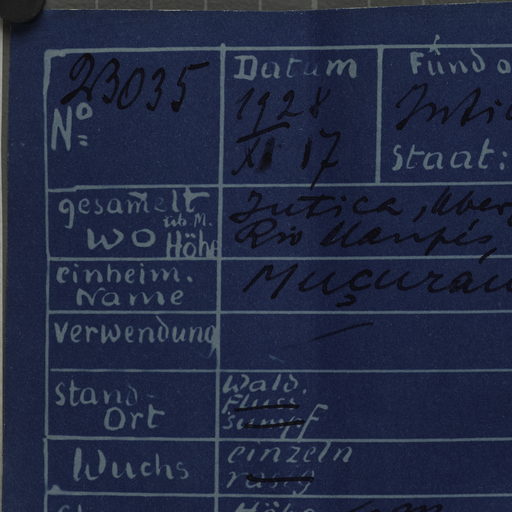 No 23035
Datum
1928
XI 17
Fundo
Jutica
Staat:
gesam̅elt
wo üb. M. Höhe
Jutica, Uber
Rio Uaupés,
einheim.
Name
Muçurau
Verwendung
—
Stand-
Ort
Wald.
Fluss
Sumpf
Wuchs
einzeln
rasig
Höhe